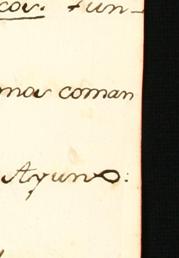 cos. Fun-
mos coman
Ayuno: